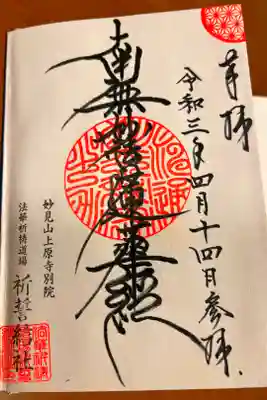 奉拝
令和三年四月十四日参拝
南無妙法蓮華経
妙見山上原寺別院
法華祈祷道場
祈誓結社